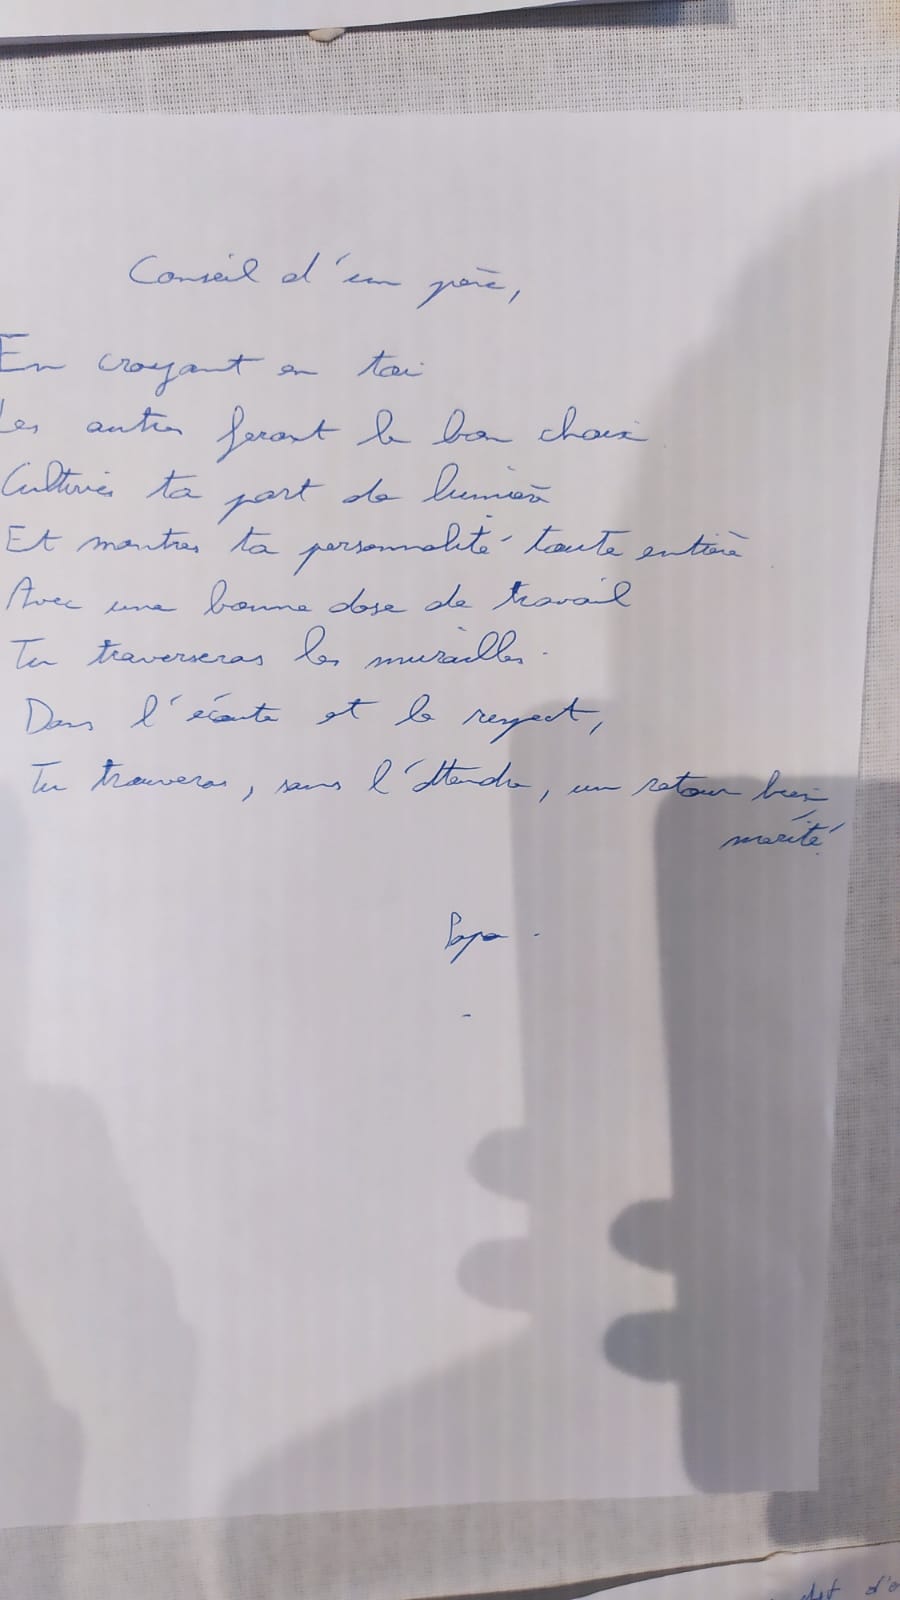 Conseil d'un père,
En croyant en toi
Les autres feront le bon choix
Cultives ta part de lumière
Et montres ta personnalité toute entière
Avec une bonne dose de travail
Tu traverseras les murailles.
Dans l'écoute et le respect,
Tu trouveras, sans l'attendre, un retour bien
mérité.
Papa.